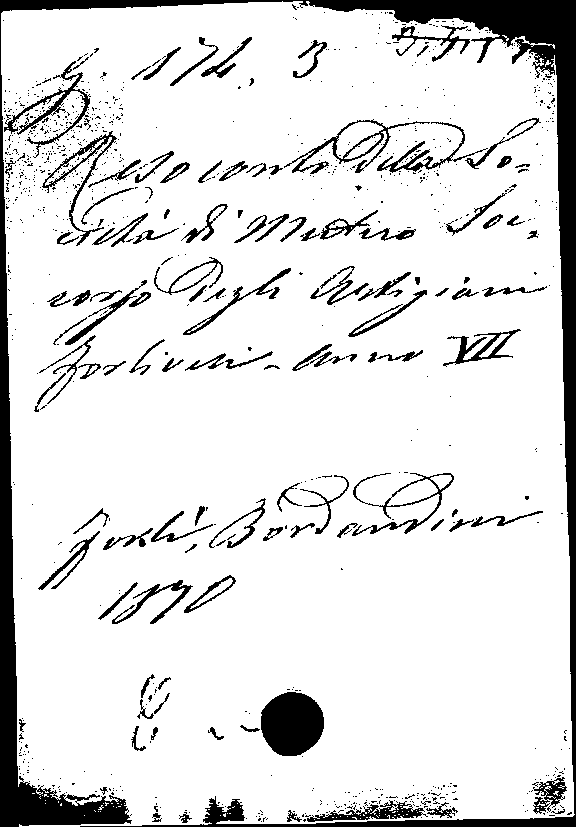 G. 174. 3
Resoconto Della So-
cietà di Mutuo Soc-
corso Degli Artigiani
forlivesi - Anno VII
Forlì, Bordandini
1870